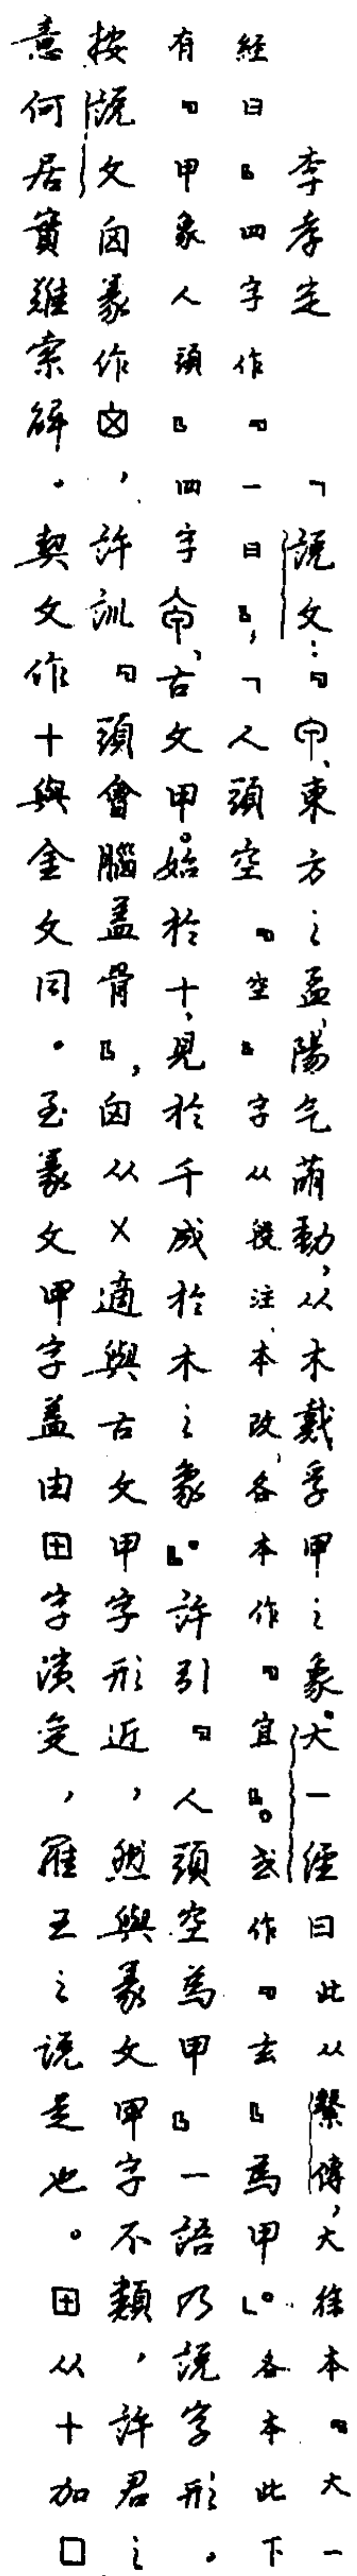 李孝定　「說文：『甲、東方之孟，陽气萌動，从木戴孚甲之象。大一經曰此从繫傳，大徐本『大一
經曰』四字作『一曰』，「人頭空『空』字从段注本改，各本作『宜』。或作『玄』爲甲』。各本此下
有『甲象人頭』四字𠇚、古文甲。始於十，見於千，成於木之象』。許引『人頭空爲甲』一語乃說字形。
按說文囟篆作囟，許訓『頭會腦蓋骨』，囟从㐅適與古文甲字形近，然與篆文甲字不類，許君之
意何居實難索解。契文作十與金文同。至篆文甲字蓋由田字演變，羅王之說是也。田从十加囗